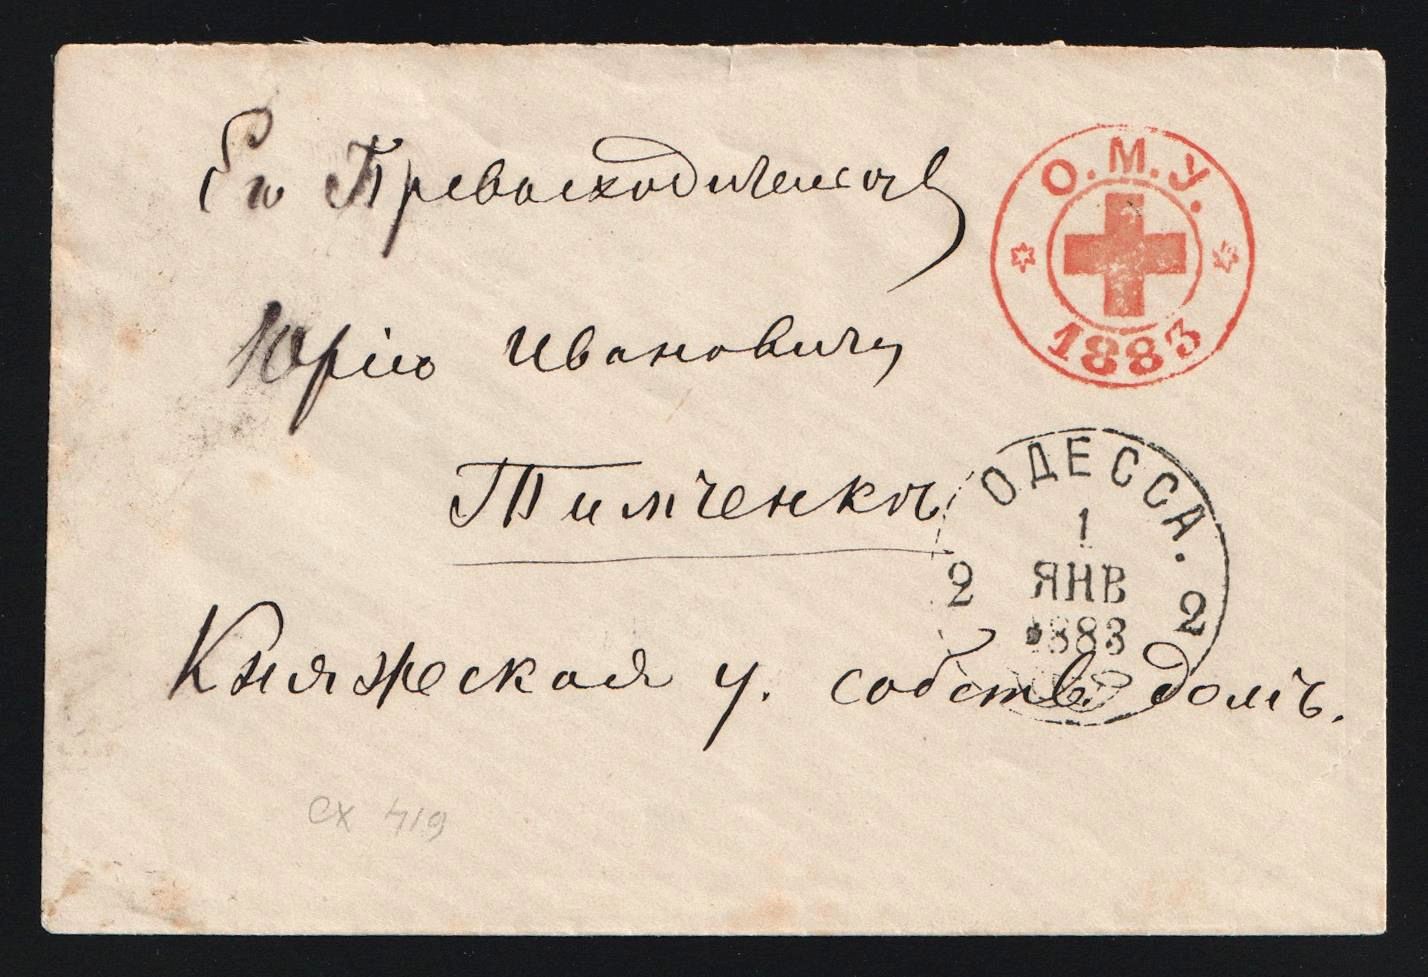 Его Превосходительству
О.М.У.
1883
Юрію Ивановичу
Тимченко
ОДЕССА.
1
ЯНВ
1883
2 2
Княжеская у. собств. домъ.
сх 419